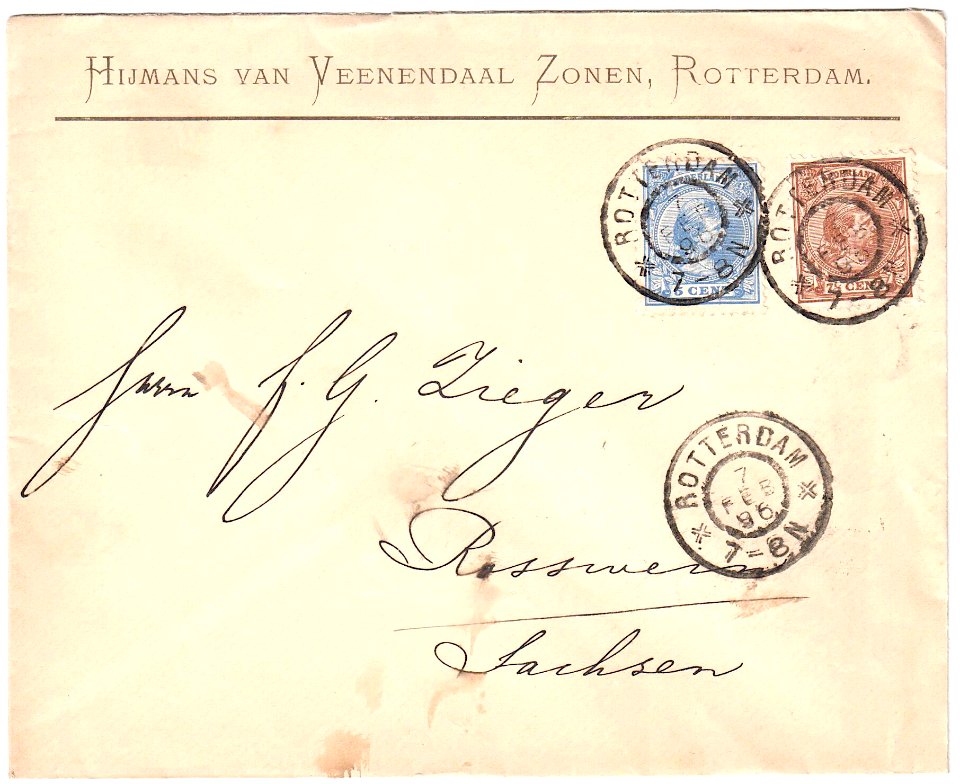 HIJMANS VAN VEENENDAAL ZONEN, ROTTERDAM.
ROTTERDAM
7-8N
5 CENT
ROTTERDAM
7-8N
7½ CENT
Herrn F. G. Zieger
ROTTERDAM
7
FEB
96
7-8N
Rosswein
Sachsen